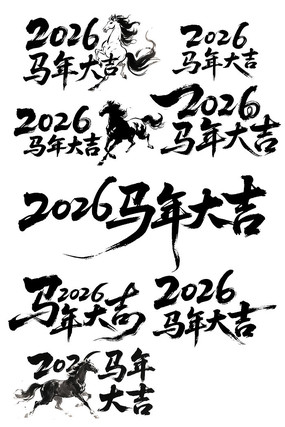 2026
马年大吉
2026
马年大吉
2026
马年大吉
2026
马年大吉
2026马年大吉
马2026
年大吉
2026
马年大吉
2026 马年
大吉